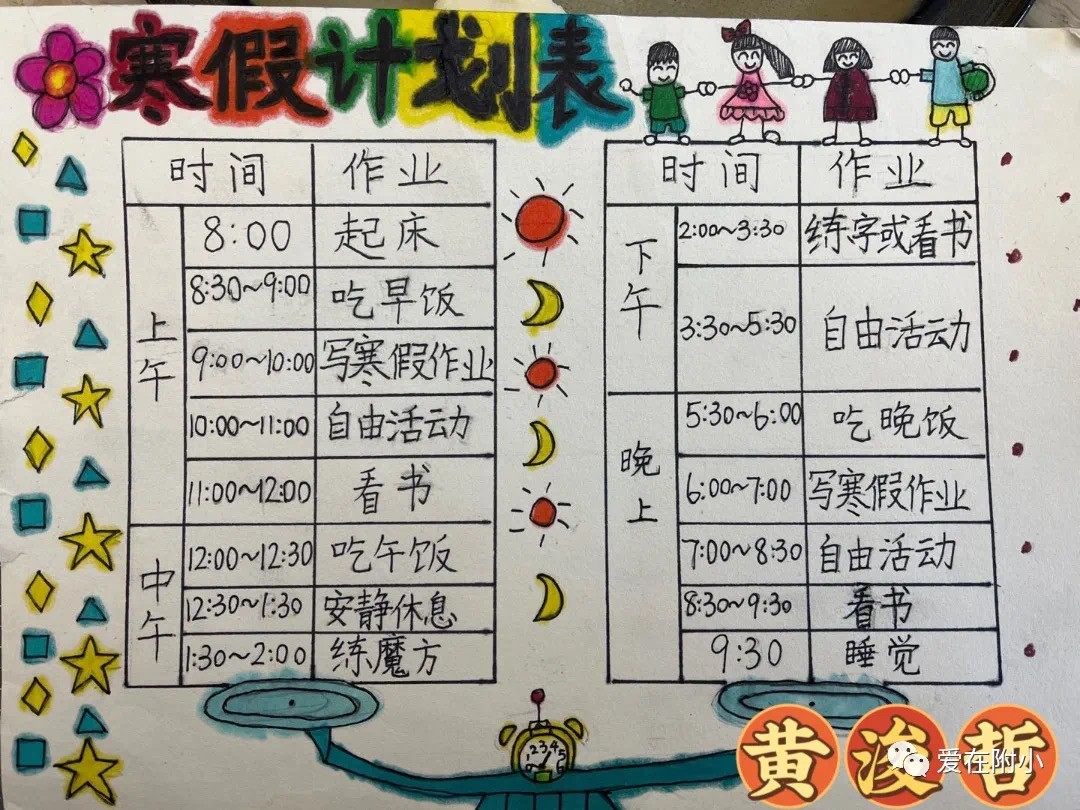 寒假计划表
时间 作业
上午
8:00 起床
8:30~9:00 吃早饭
9:00~10:00 写寒假作业
10:00~11:00 自由活动
11:00~12:00 看书
中午
12:00~12:30 吃午饭
12:30~1:30 安静休息
1:30~2:00 练魔方
时间 作业
下午
2:00~3:30 练字或看书
3:30~5:30 自由活动
晚上
5:30~6:00 吃晚饭
6:00~7:00 写寒假作业
7:00~8:30 自由活动
8:30~9:30 看书
9:30 睡觉
黄浚哲
爱在附小